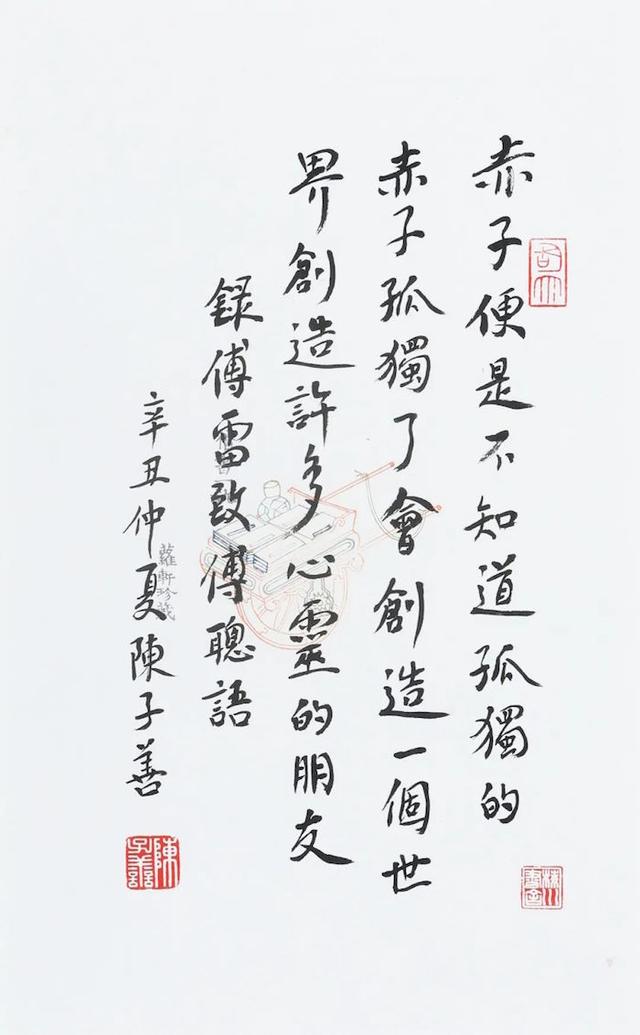 赤子便是不知道孤獨的
赤子孤獨了會創造一個世
界創造許多心靈的朋友
錄傅雷致傅聰語
辛丑仲夏陳子善
蘿軒珍藏
陳子善